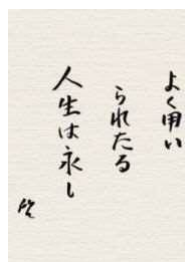 よく用い
られたる
人生は永し